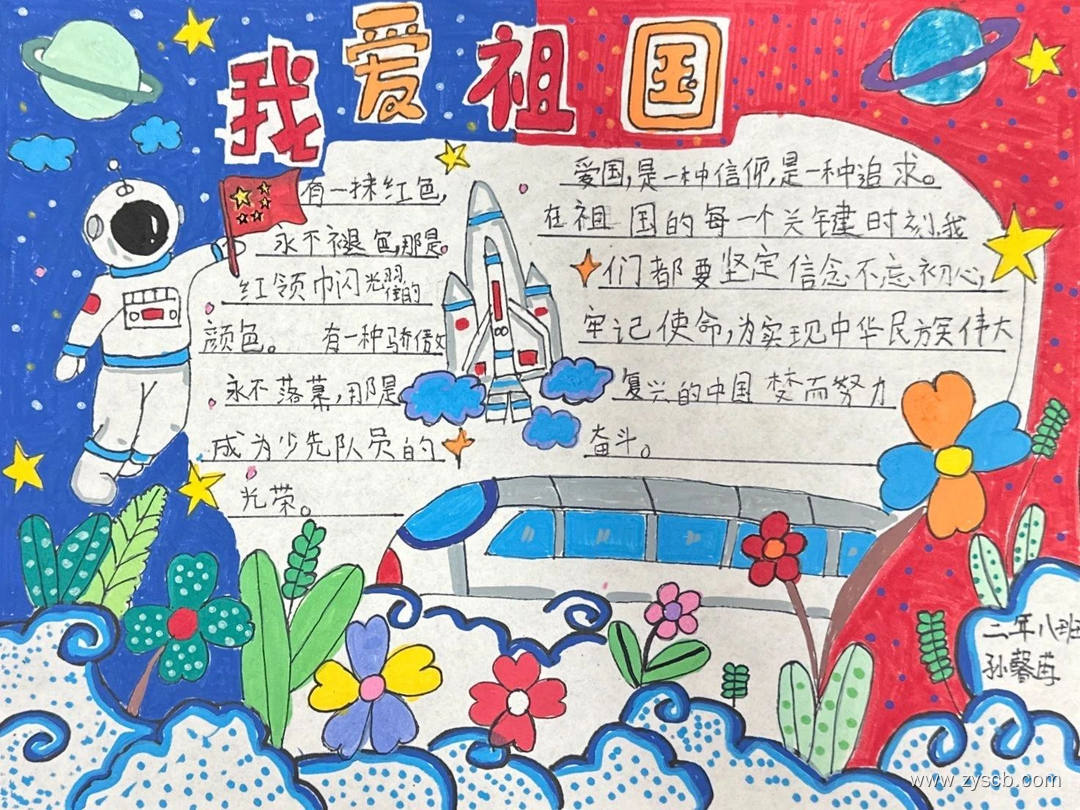 我爱祖国
有一抹红色,
永不褪色,那是
红领巾闪光的
颜色。 有一种骄傲
永不落幕,那是
成为少先队员的
光荣。
爱国,是一种信仰,是一种追求。
在祖国的每一个关键时刻,我
们都要坚定信念不忘初心,
牢记使命,为实现中华民族伟大
复兴的中国梦而努力
奋斗。
二年八班
孙馨
www.zyscb.com